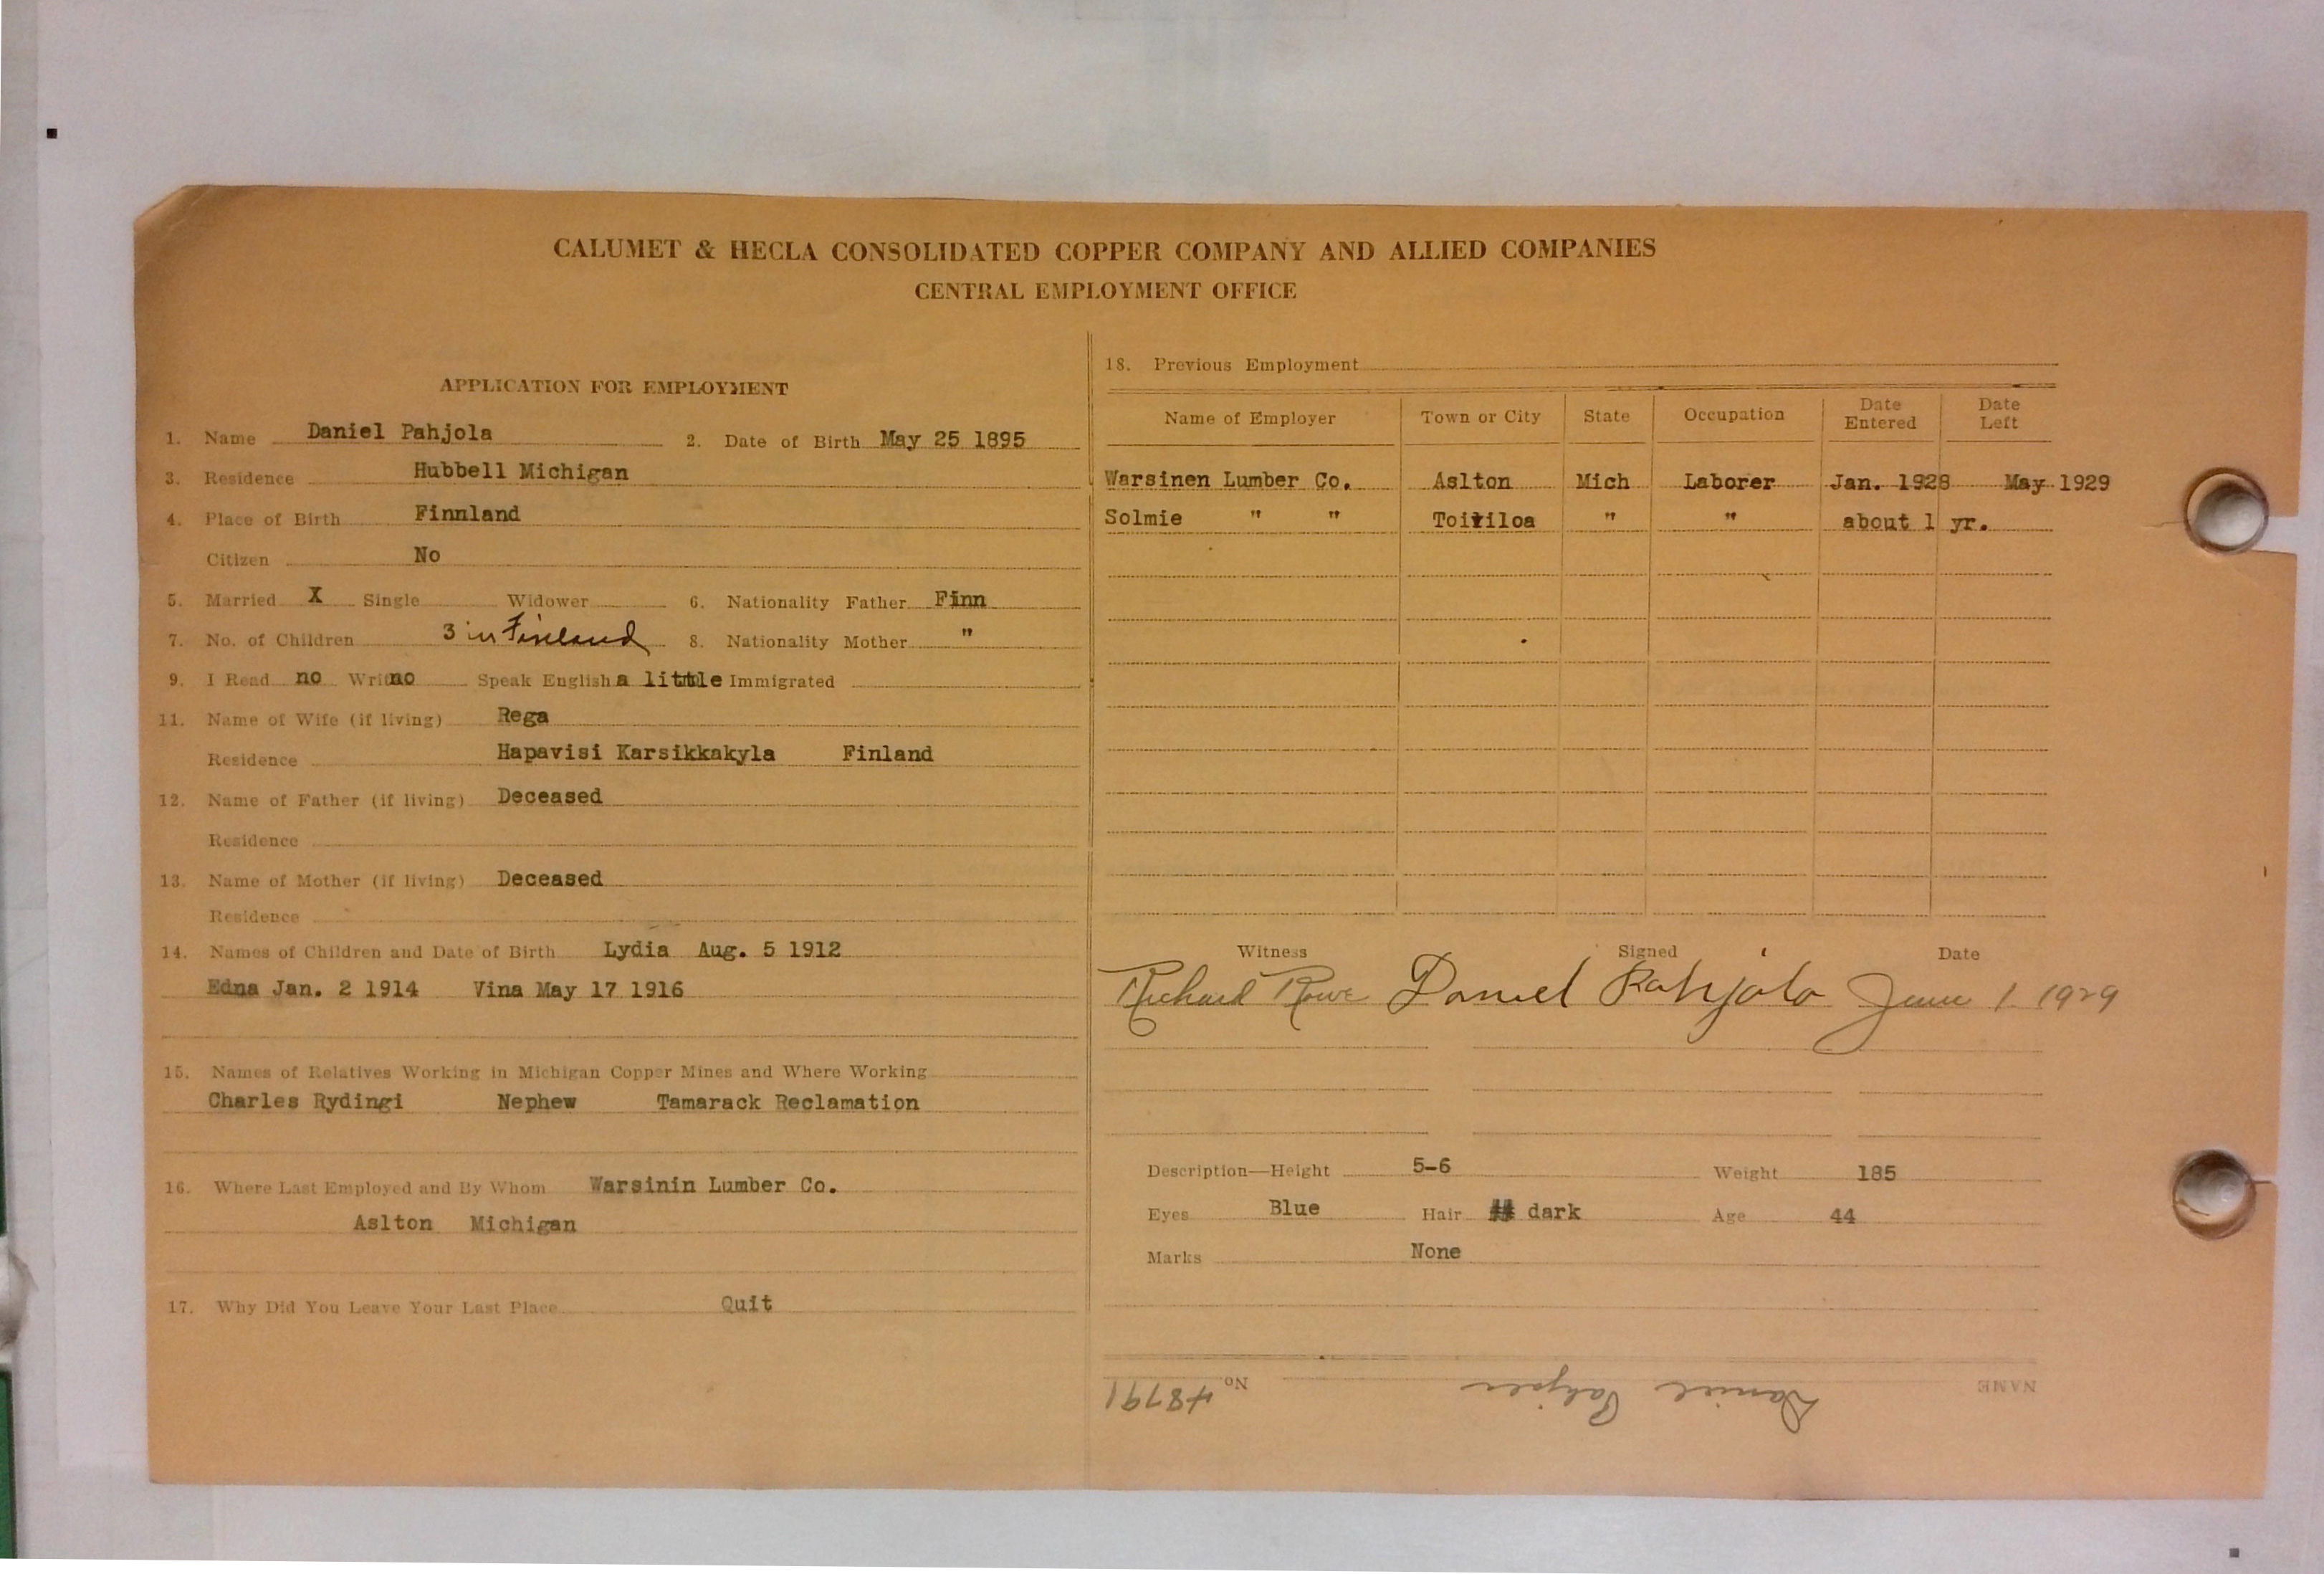 CALUMET & HECLA CONSOLIDATED COPPER COMPANY AND ALLIED COMPANIES
CENTRAL EMPLOYMENT OFFICE
APPLICATION FOR EMPLOYMENT
1. Name Daniel Pahjola 2. Date of Birth May 25 1895
3. Residence Hubbell Michigan
4. Place of Birth Finnland
Citizen No
5. Married X Single Widower 6. Nationality Father Finn
7. No. of Children 3 in Finland 8. Nationality Mother "
9. I Read no Writ no Speak English a little Immigrated
11. Name of Wife (if living) Rega
Residence Hapavisi Karsikkakyla Finland
12. Name of Father (if living) Deceased
Residence
13. Name of Mother (if living) Deceased
Residence
14. Names of Children and Date of Birth Lydia Aug. 5 1912
Edna Jan. 2 1914 Vina May 17 1916
15. Names of Relatives Working in Michigan Copper Mines and Where Working
Charles Rydingi Nephew Tamarack Reclamation
16. Where Last Employed and By Whom Warsinin Lumber Co.
Aslton Michigan
17. Why Did You Leave Your Last Place Quit
18. Previous Employment
Name of Employer Town or City State Occupation Date Entered Date Left
Warsinen Lumber Co. Aslton Mich Laborer Jan. 1928 May 1929
Solmie " " Toiviloa " " about 1 yr.
Witness Signed Date
Richard Rowe Daniel Pahjola June 1 1929
Description—Height 5-6 Weight 185
Eyes Blue Hair dark Age 44
Marks None
NAME Daniel Pahjola No. 48791